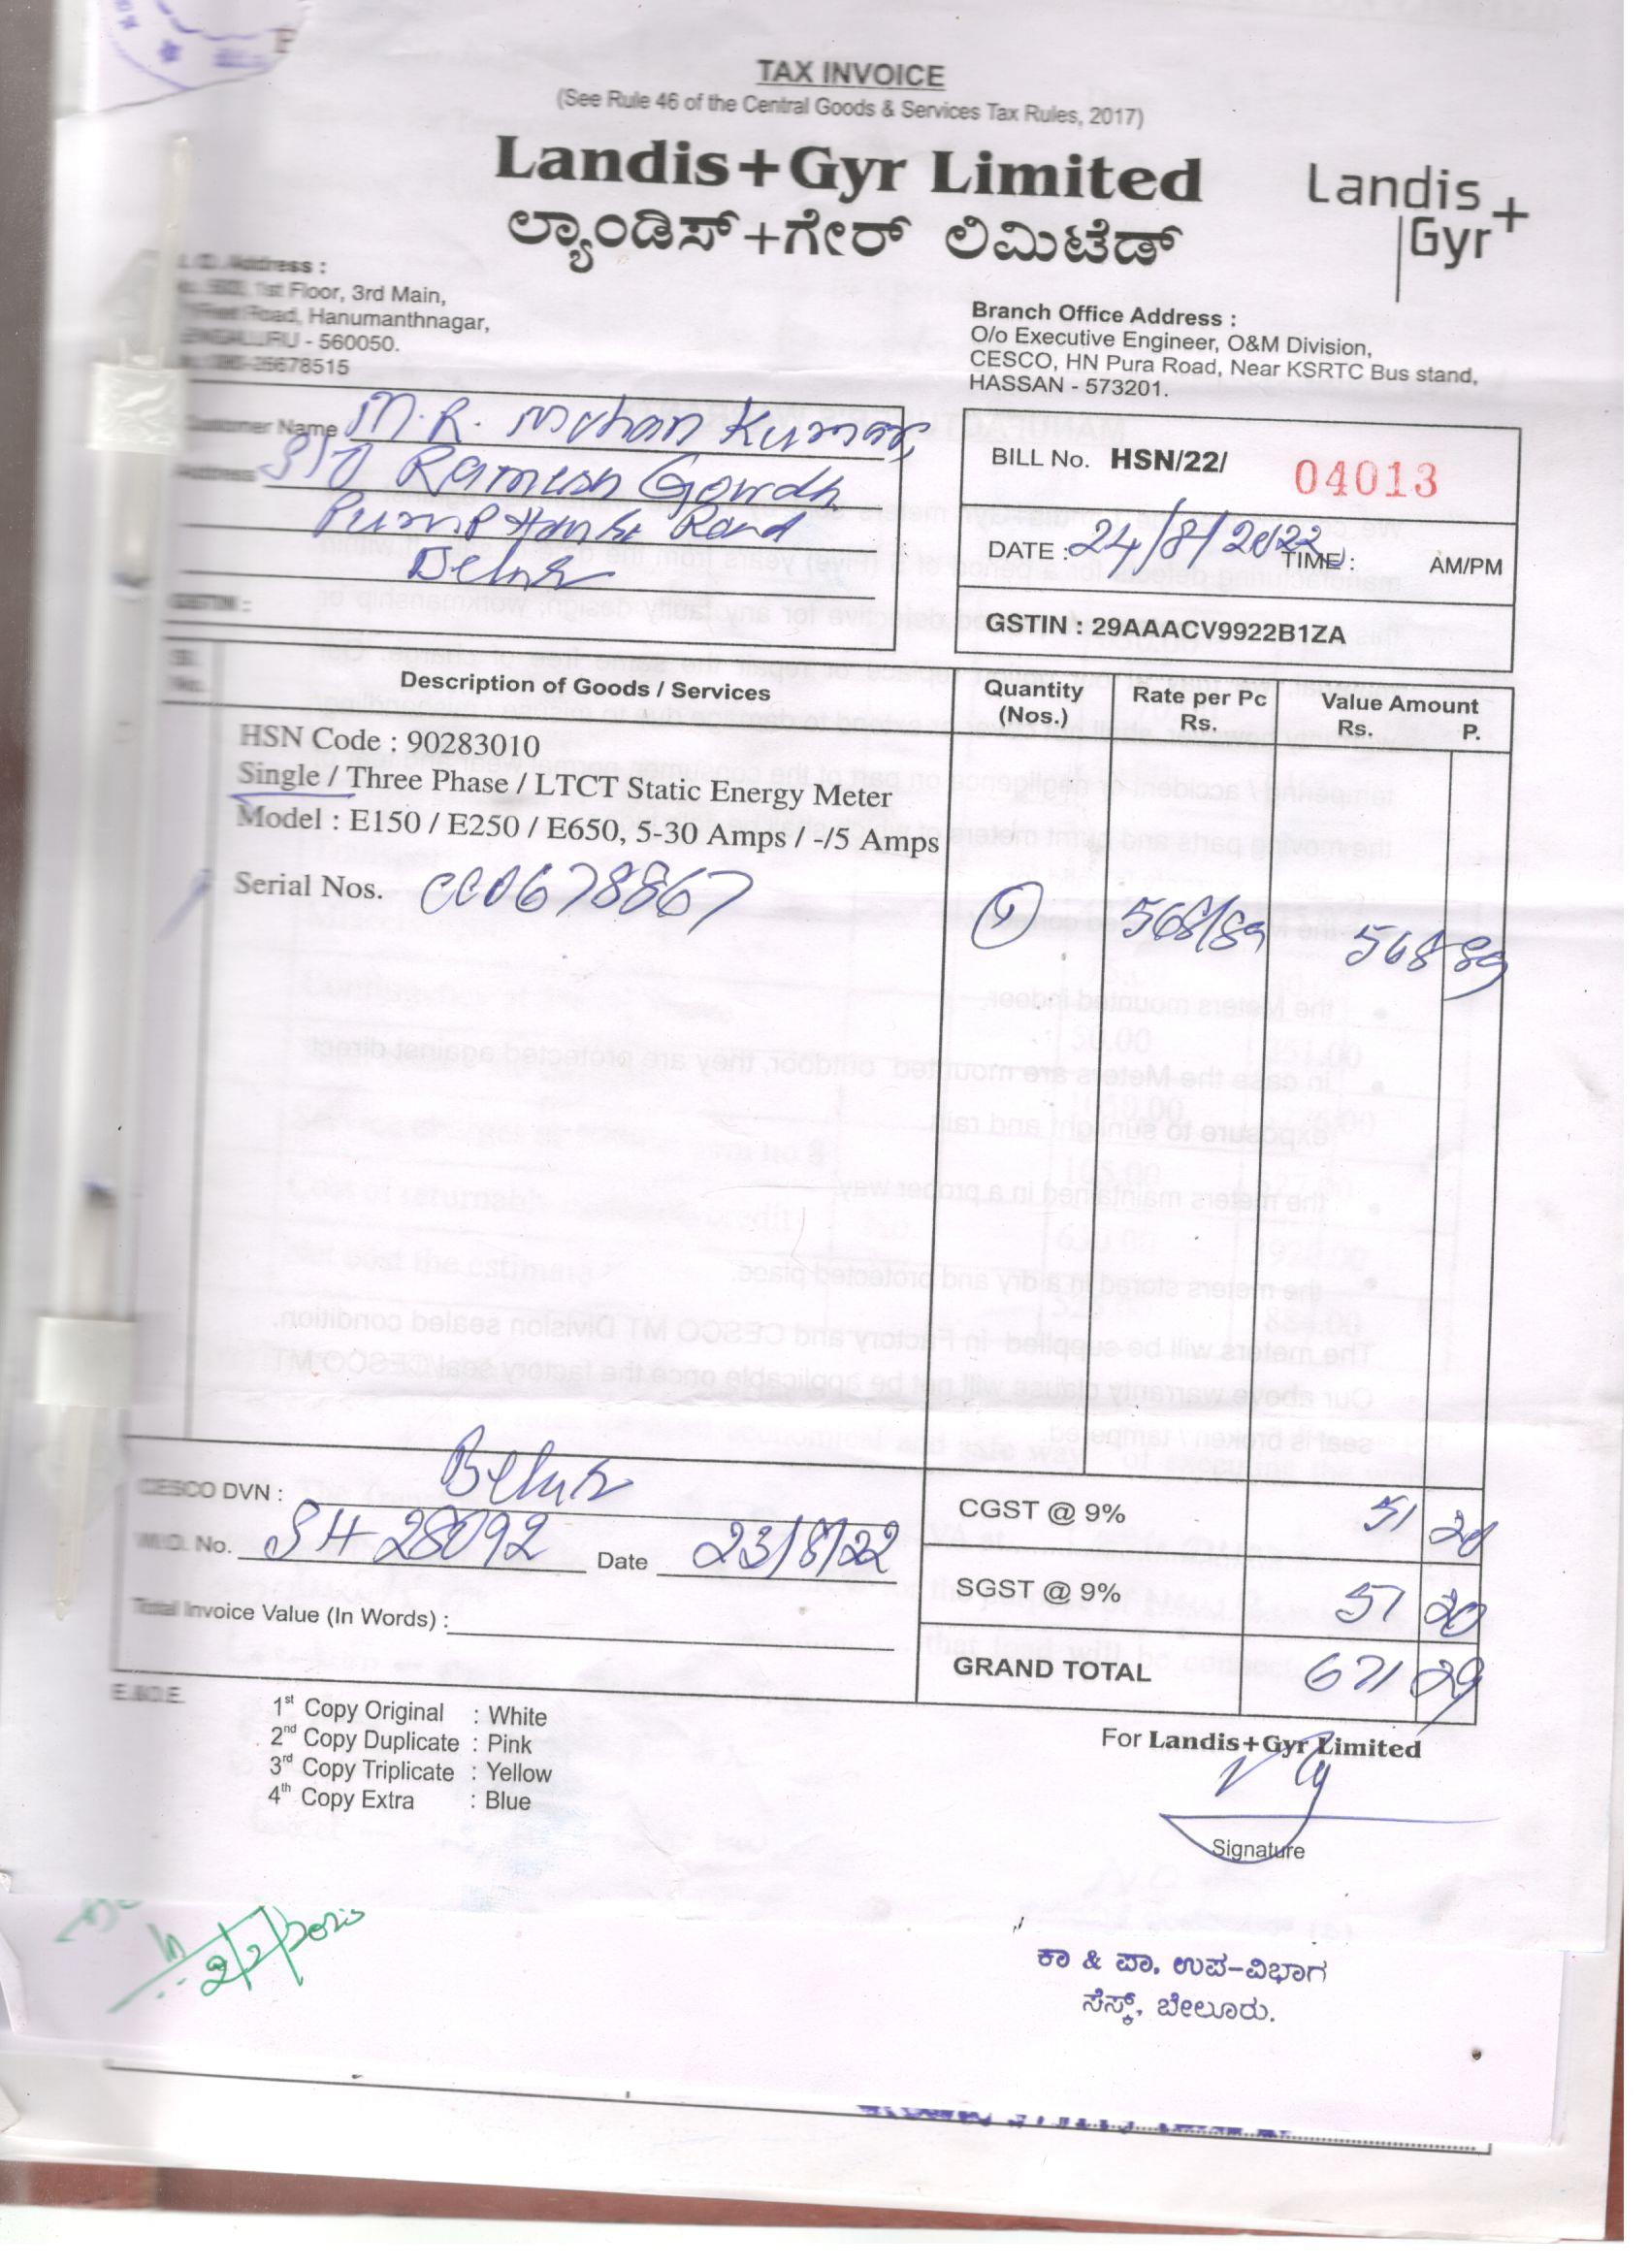 TAX INVOICE
(See Rule 46 of the Central Goods & Services Tax Rules, 2017)
Landis+Gyr Limited
ಲ್ಯಾಂಡಿಸ್+ಗೇರ್ ಲಿಮಿಟೆಡ್
Landis
Gyr+
Address :
1st Floor, 3rd Main,
Road, Hanumanthnagar,
- 560050.
25678515
Branch Office Address :
O/o Executive Engineer, O&M Division,
CESCO, HN Pura Road, Near KSRTC Bus stand,
HASSAN - 573201.
Customer Name M.R. Mohan Kumar,
Address S/O Ramesh Gowda
Pump House Road
Belur
GSTIN :
BILL No. HSN/22/ 04013
DATE : 24/8/2022 TIME : AM/PM
GSTIN : 29AAACV9922B1ZA
Sl. No. Description of Goods / Services Quantity (Nos.) Rate per Pc Rs. Value Amount Rs. P.
HSN Code : 90283010
Single / Three Phase / LTCT Static Energy Meter
Model : E150 / E250 / E650, 5-30 Amps / -/5 Amps
Serial Nos. CC0678867 1 568/89 568 89
CESCO DVN : Belur
W.O. No. SH 28092 Date 23/8/22
Total Invoice Value (In Words) :
CGST @ 9% 51 20
SGST @ 9% 51 20
GRAND TOTAL 671 29
E.&O.E.
1st Copy Original : White
2nd Copy Duplicate : Pink
3rd Copy Triplicate : Yellow
4th Copy Extra : Blue
For Landis+Gyr Limited
Signature
ಕಾ & ಪಾ. ಉಪ-ವಿಭಾಗ
ಸೆಸ್ಕ್, ಬೇಲೂರು.